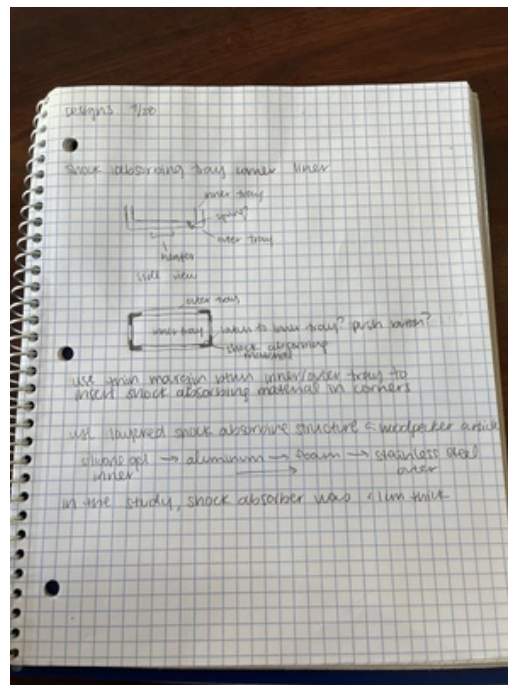 Designs 9/20
shock absorbing tray corner liner
inner tray
spring?
outer tray
heater
side view
outer tray
inner tray
to inner tray? push button?
shock absorbing
material
use thin margin btwn inner/outer tray to
insert shock absorbing material in corners
use layered shock absorbing structure woodpecker article
silicone gel → aluminum → foam → stainless steel
inner
outer
in the study, shock absorber was < 1cm thick